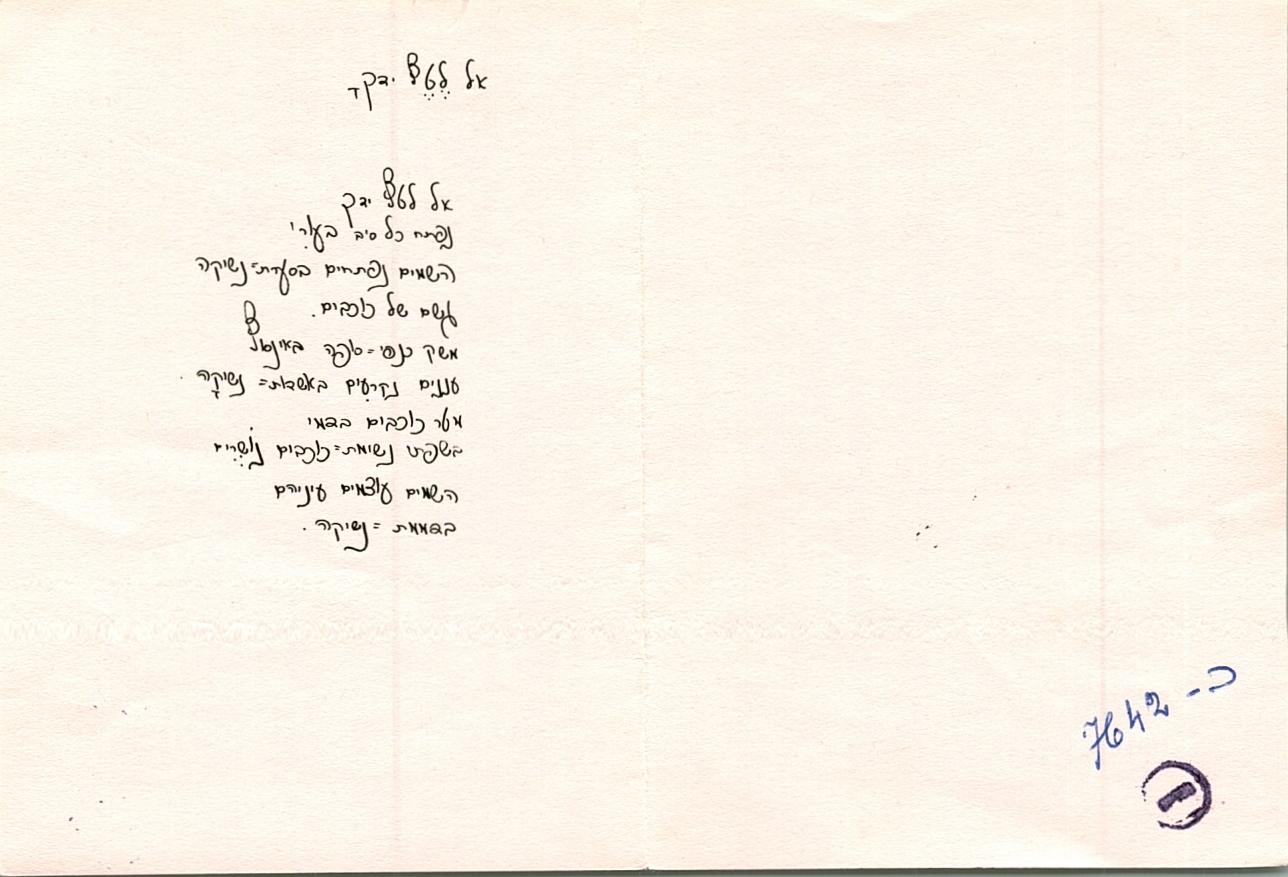 אל לטף ידך
אל לטף ידך
נפתח כל סיב בעורי
השמים נפתחים בסערת=נשיקה
גשם של כוכבים.
משק כנפי=סופה באינסוף
עננים נקרעים באשדות=נשיקה.
מטר כוכבים בדמי
בשפתי נשימת=כוכבים נושרים
השמים עוצמים עיניהם
בדממת=נשיקה.
כ-7642